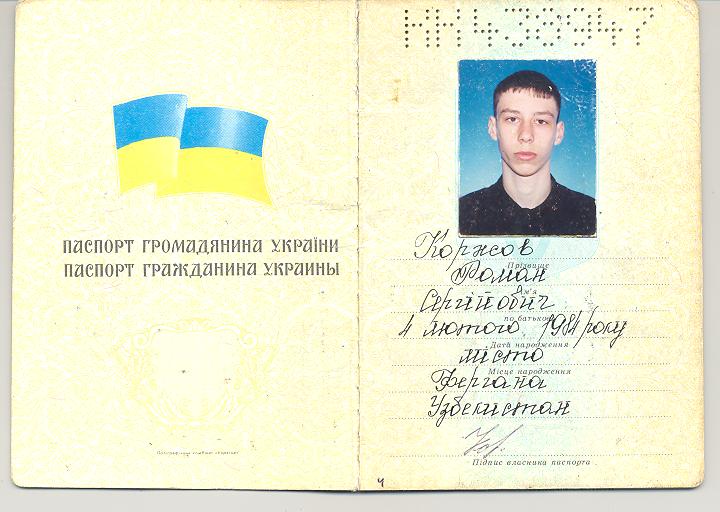 ПАСПОРТ ГРОМАДЯНИНА УКРАЇНИ
ПАСПОРТ ГРАЖДАНИНА УКРАИНЫ
НН438947
Коржов
Прізвище
Роман
Ім'я
Сергійович
по батькові
4 лютого 1984 року
Дата народження
місто
Місце народження
Фергана
Узбекистан
Підпис власника паспорта
4